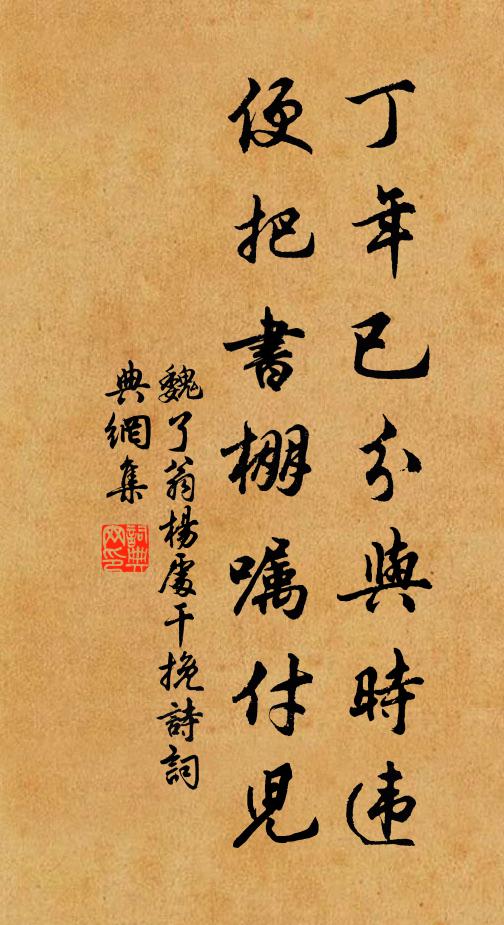 丁年已分與時违
便把書棚嘱付兒
魏了翁楊處干挽詩詞
典網集
詞典網印